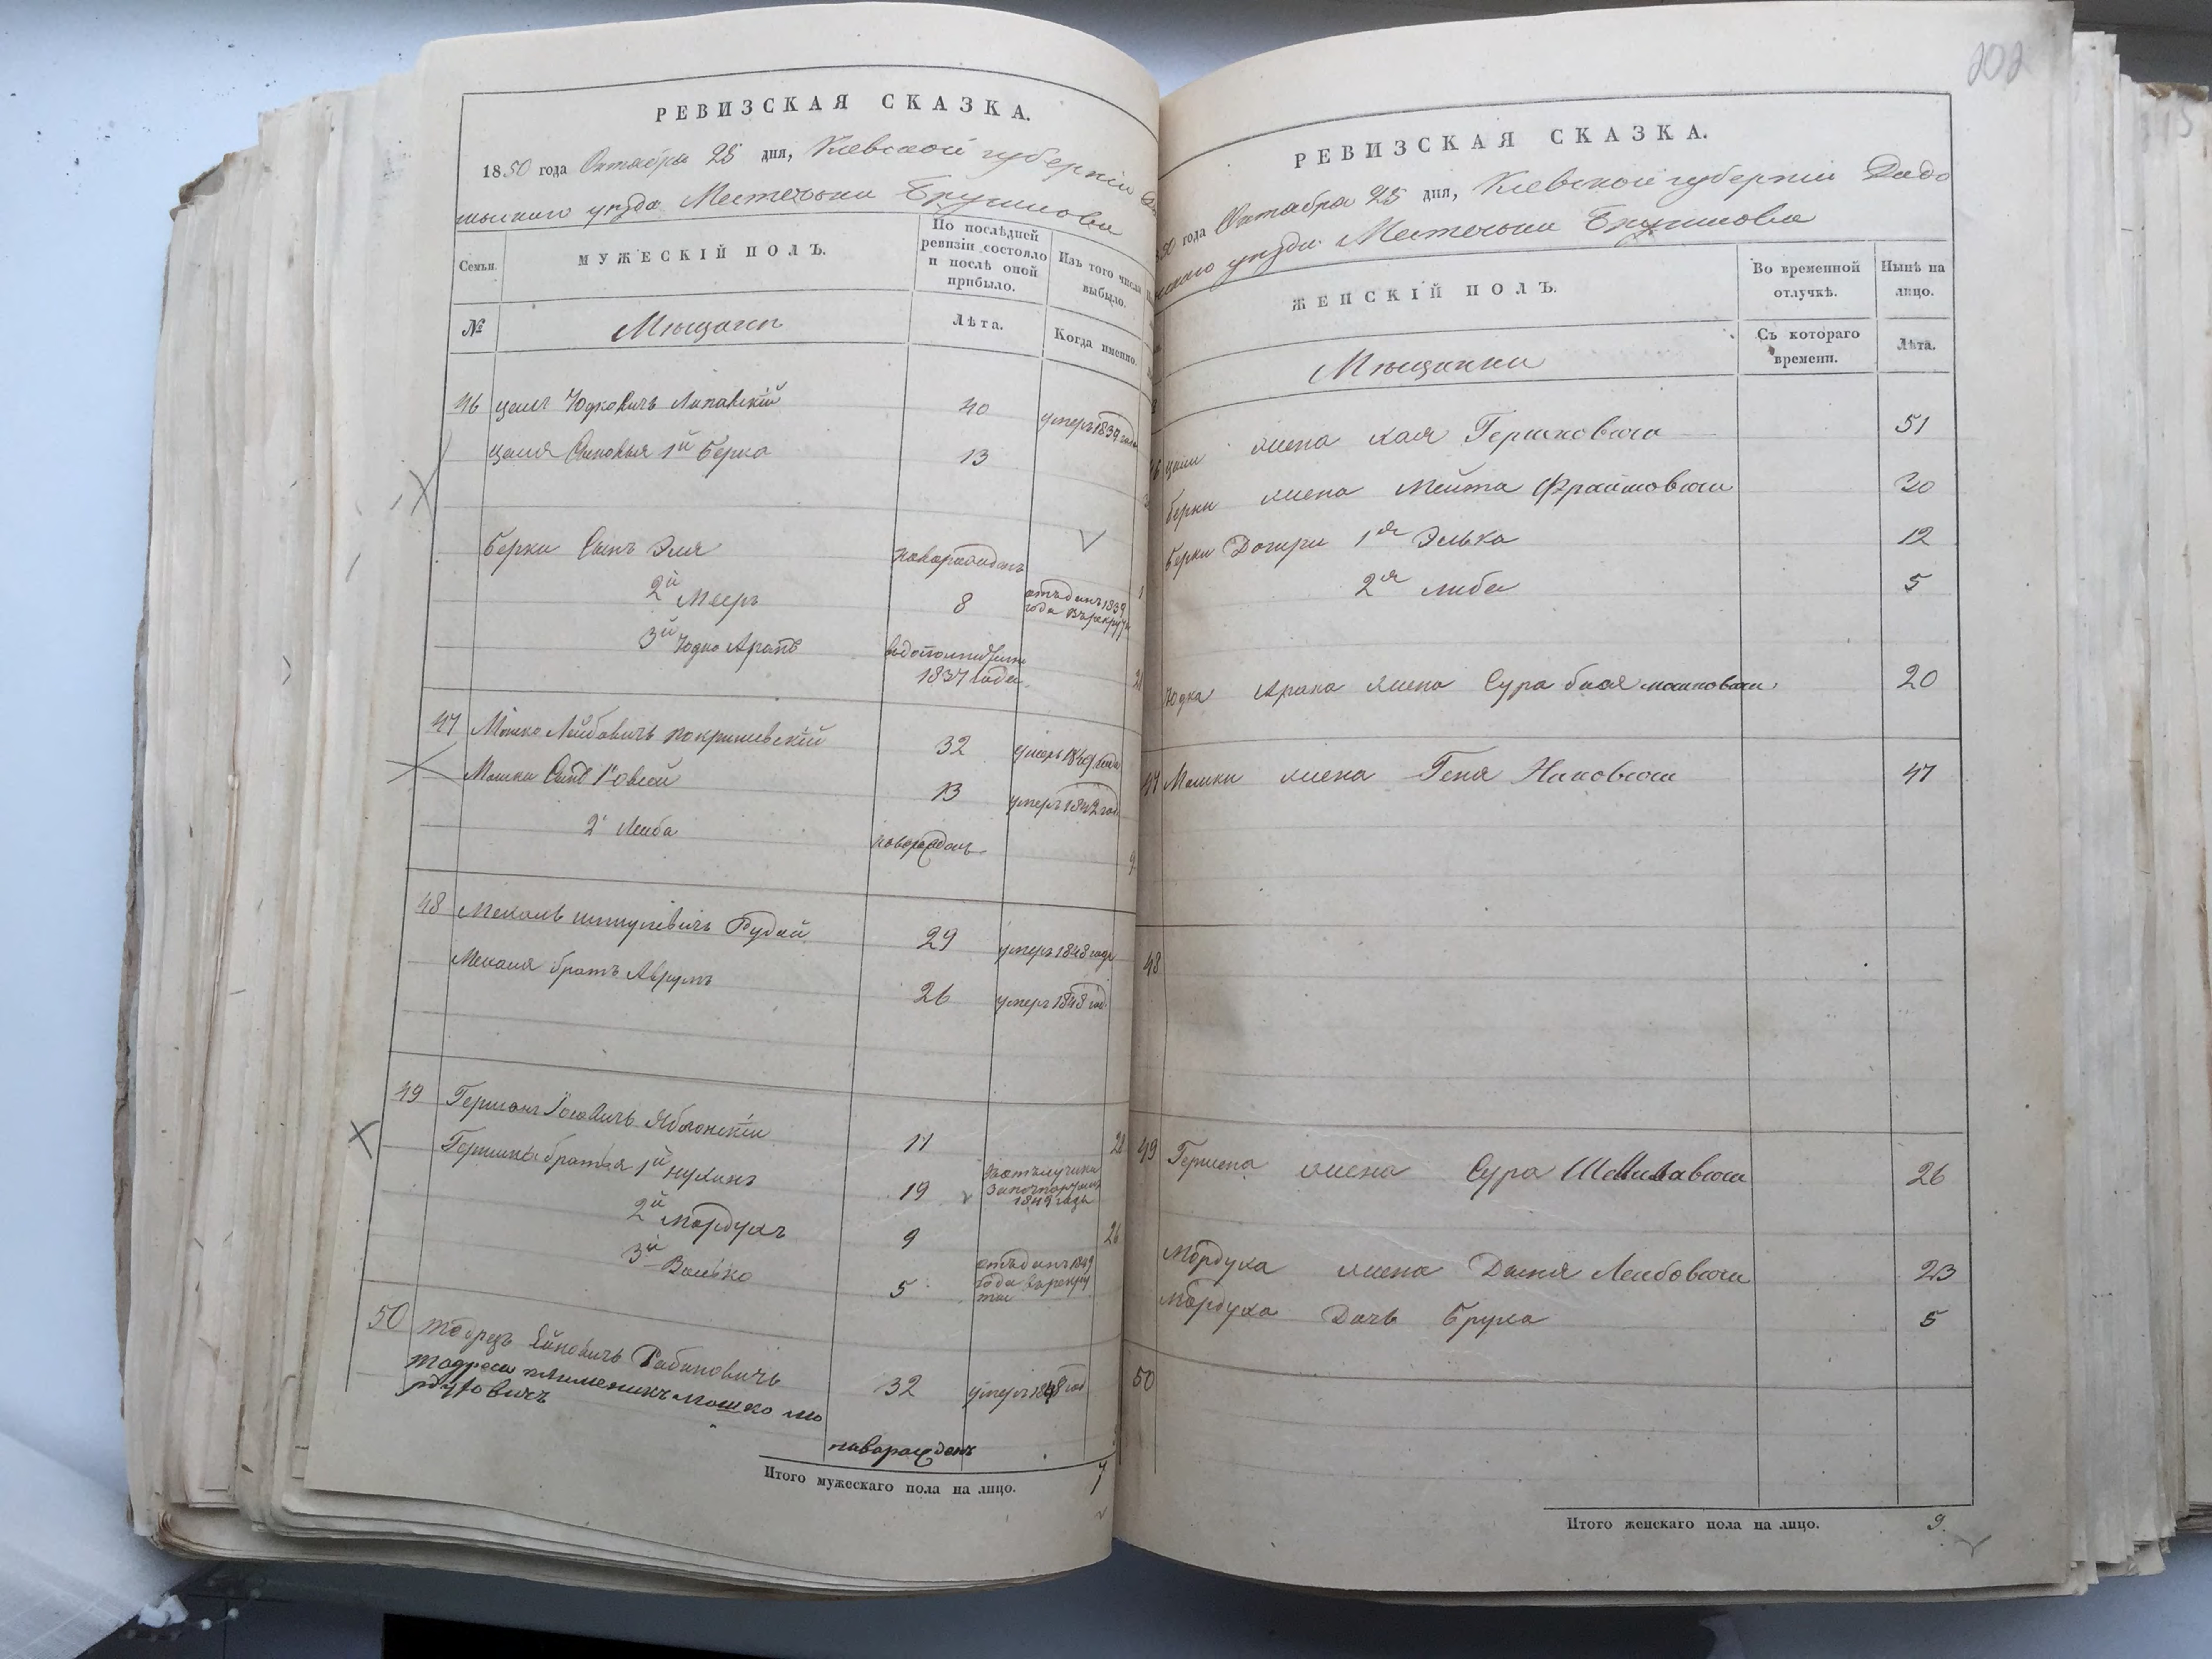 РЕВИЗСКАЯ СКАЗКА.
1850 года Октября 25 дня, Кіевской губерніи
мысльского уезда Местечка Брусилова
Семьи.
МУЖЕСКІЙ ПОЛЪ.
По послѣдней ревизіи состояло и послѣ оной прибыло.
Изъ того числа выбыло.
№
Мѣщане
Лѣта.
Когда именно.
46 Цаля Юдковичъ Липавскій 40 умеръ 1839 года
Цаля Сыновья 1й Берко 13
Берки Сынъ Эля новорожденъ
2й Меер 8 отъданъ 1839 года въ рекруты
3й Юдко Аронъ 1837 года
47 Мошко Лейбовичъ 32 умеръ 1849 года
Мошки Сынъ 1й Овсей 13 умеръ 1842 год
2й Лейба новорожден
48 Рудой 29 умеръ 1848 года
братъ Аврумъ 26 умеръ 1848 год
49 Яблонскій 17 28
Гершона братья 1й Нухимъ 19 1849 года
2й Мордухъ 9 26
3й Волько 5 отъданъ 1849 года въ рекруты
50 Рабиновичъ 32 умеръ 1848 год
племенникъ Мошко Мо
рдуховичъ
новорожденъ
Итого мужескаго пола на лицо. 7
202
РЕВИЗСКАЯ СКАЗКА.
50 года Октабра 25 дня, Кіевской губерніи Радо
уезда Местечка Брусилова
ЖЕНСКІЙ ПОЛЪ.
Во временной отлучкѣ.
Нынѣ на лицо.
Мѣщанки
Съ котораго времени.
Лѣта.
46 Цали жена Хая Гершковна 51
Берки жена Мейта 30
Берки Дочери 1я Элька 12
2я Либа 5
Юдка Арона жена Сура Бася Мошковна 20
47 Мошки жена Геня 47
48
49 Гершона жена Сура 26
Мордуха жена Лейбовна 23
Мордуха Дочь Бруха 5
50
Итого женскаго пола на лицо. 9.